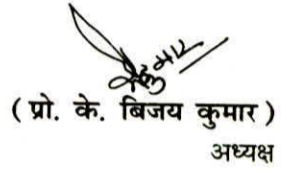 ( प्रो. के. बिजय कुमार )
अध्यक्ष